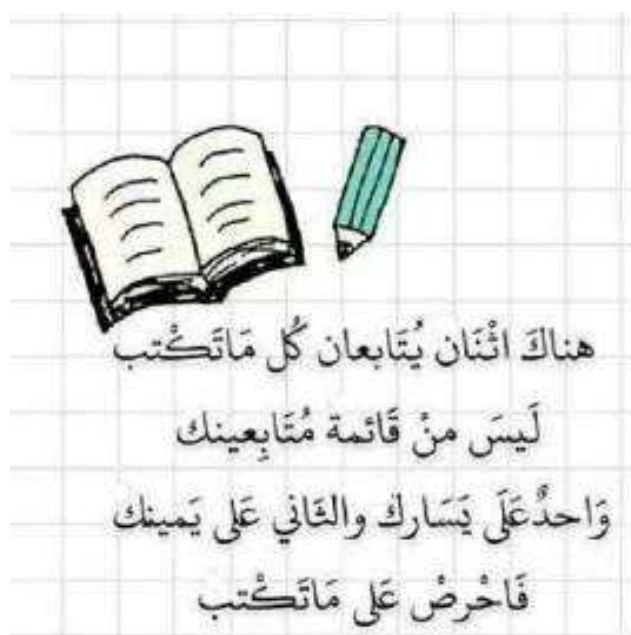 هناكَ اثْنَان يُتَابعان كُل مَاتَكْتب
لَيسَ منْ قَائمة مُتَابِعينك
وَاحدٌعَلَى يَسَارك والثَاني عَلى يَمينك
فَاحْرصْ عَلى مَاتَكْتب